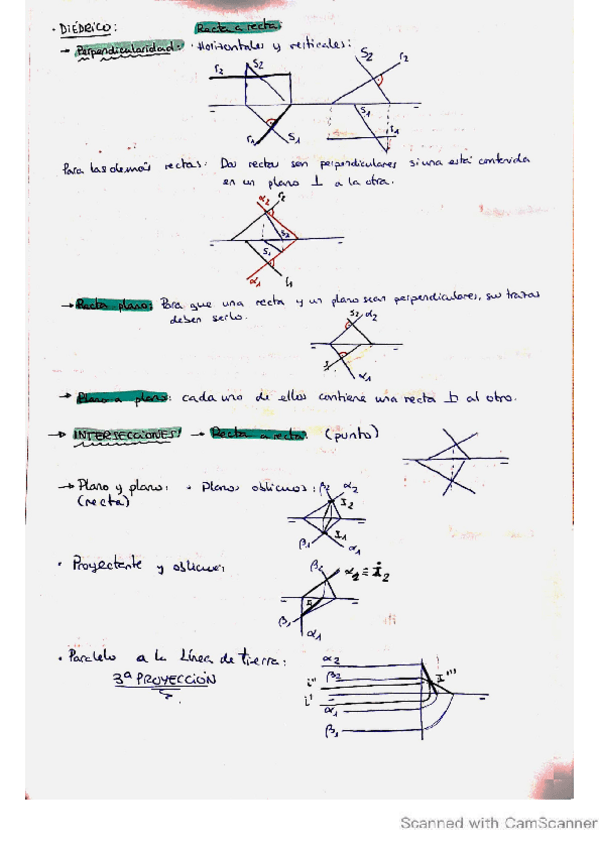 · DIÉDRICO: Recta a recta:
→ Perpendicularidad: · Horizontales y verticales:
r2 s2 s2 r2
r1 s1 s1 r1
Para las demás rectas: Dos rectas son perpendiculares si una está contenida
en un plano ⊥ a la otra.
α2 r2
s2
s1
α1 r1
→ Recta plano: Para que una recta y un plano sean perpendiculares, sus trazas
deben serlo.
s2 α2
α1
→ Plano a plano: cada uno de ellos contiene una recta ⊥ al otro.
→ INTERSECCIONES: → Recta a recta: (punto)
→ Plano y plano: · Planos oblicuos: β2 α2
(recta) I2
I1
β1 α1
· Proyectante y oblicuo: β2 α2 ≡ I2
β1
α1
· Paralelo a la Línea de tierra: α2
3ª PROYECCIÓN β2 I'''
i''
i'
α1
β1
Scanned with CamScanner